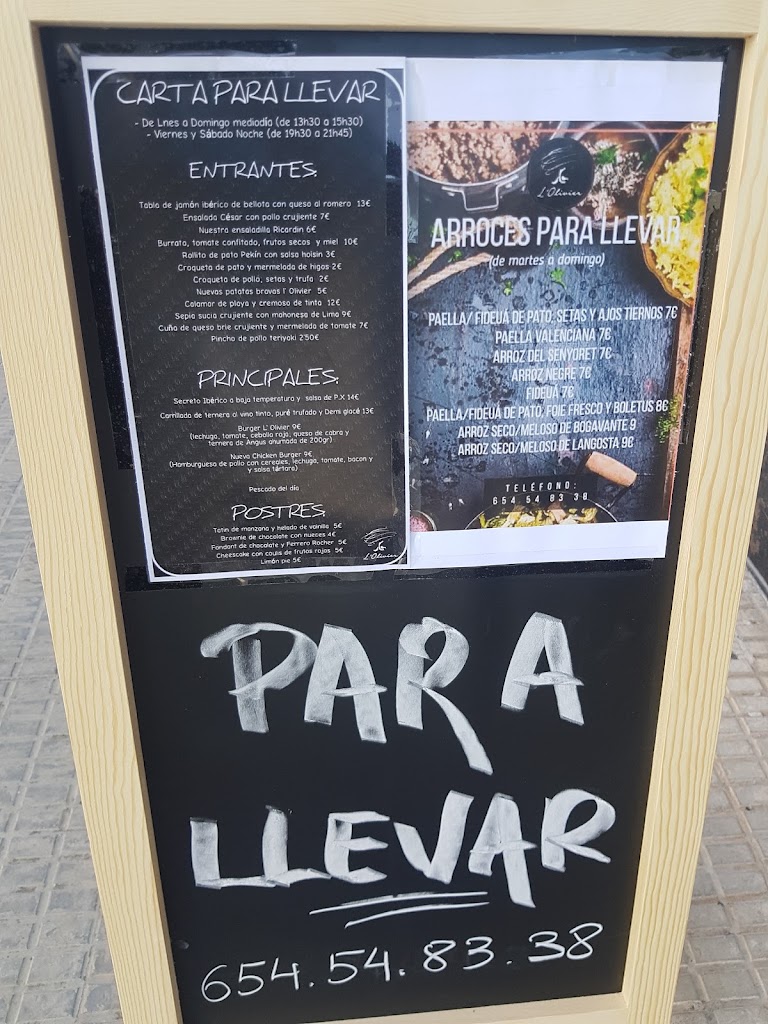 CARTA PARA LLEVAR
- De Lnes a Domingo mediodía (de 13h30 a 15h30)
- Viernes y Sábado Noche (de 19h30 a 21h45)
ENTRANTES:
Tabla de jamón ibérico de bellota con queso al romero 13€
Ensalada César con pollo crujiente 7€
Nuestra ensaladilla Ricardin 6€
Burrata, tomate confitado, frutos secos y miel 10€
Rollito de pato Pekín con salsa hoisin 3€
Croqueta de pato y mermelada de higos 2€
Croqueta de pollo, setas y trufa 2€
Nuevas patatas bravas l' Olivier 5€
Calamar de playa y cremoso de tinta 12€
Sepia sucia crujiente con mahonesa de Lima 9€
Cuña de queso brie crujiente y mermelada de tomate 7€
Pincho de pollo teriyaki 2'50€
PRINCIPALES:
Secreto Ibérico a baja temperatura y salsa de P.X 14€
Carrillada de ternera al vino tinto, puré trufado y Demi glacé 13€
Burger L' Olivier 9€
(lechuga, tomate, cebolla roja, queso de cabra y
ternera de Angus ahumada de 200gr)
Nueva Chicken Burger 9€
(Hamburguesa de pollo con cereales, lechuga, tomate, bacon y
y salsa tártara)
Pescado del día
POSTRES:
Tatin de manzana y helado de vainilla 5€
Brownie de chocolate con nueces 4€
Fondant de chocolate y Ferrero Rocher 5€
Cheescake con coulis de frutos rojos 5€
Limón pie 5€
L'Olivier
L'Olivier
ARROCES PARA LLEVAR
(de martes a domingo)
PAELLA/ FIDEUÀ DE PATO, SETAS Y AJOS TIERNOS 7€
PAELLA VALENCIANA 7€
ARROZ DEL SENYORET 7€
ARROZ NEGRE 7€
FIDEUÀ 7€
PAELLA/FIDEUÀ DE PATO, FOIE FRESCO Y BOLETUS 8€
ARROZ SECO/MELOSO DE BOGAVANTE 9
ARROZ SECO/MELOSO DE LANGOSTA 9€
TELÉFONO:
654 54 83 38
PARA
LLEVAR
654.54.83.38